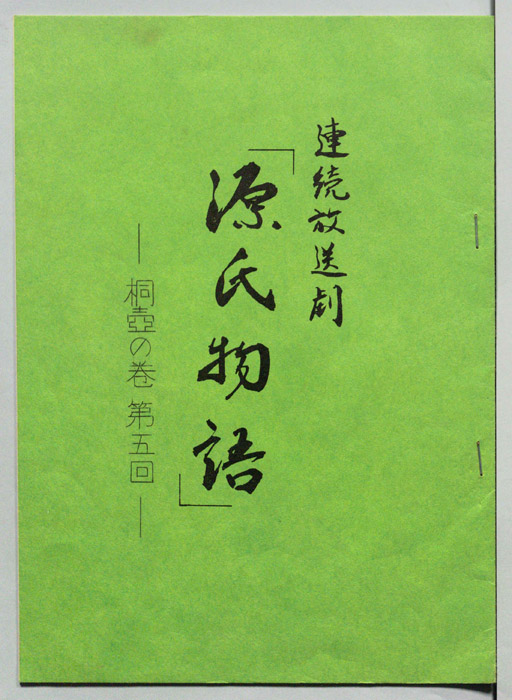 連続放送劇
「源氏物語」
― 桐壺の巻 第五回 ―